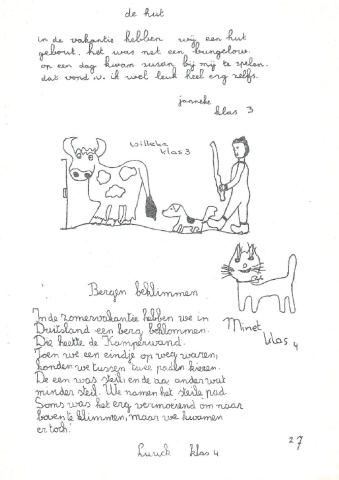 de hut
in de vakantie hebben wij een hut
gebout. het was net een bungelow.
op een dag kwam susan bij mij te spelen.
dat vond ik wel leuk heel erg zelfs.
janneke
klas 3
willeke
klas 3
Bergen beklimmen
In de zomervakantie hebben we in
Duitsland een berg beklommen.
Die heette de Kamperwand.
Toen we een eindje op weg waren,
konden we tussen twee paden kiezen.
De een was steil en de ander wat
minder steil. We namen het steile pad.
Soms was het erg vermoeiend om naar
boven te klimmen, maar we kwamen
er toch.
Luuck klas 4
Minet
klas 4
27